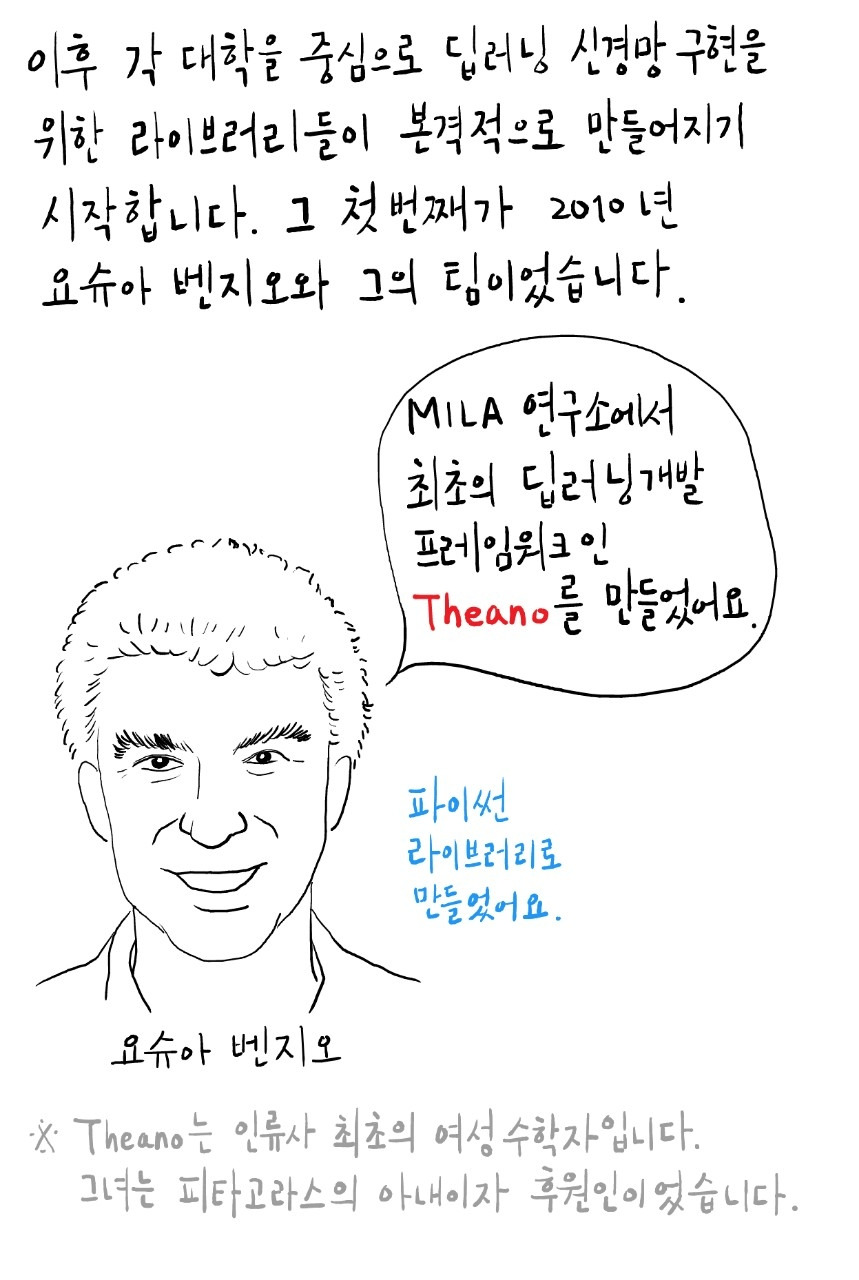 이후 각 대학을 중심으로 딥러닝 신경망 구현을
위한 라이브러리들이 본격적으로 만들어지기
시작합니다. 그 첫번째가 2010년
요슈아 벤지오와 그의 팀이었습니다.
MILA 연구소에서
최초의 딥러닝개발
프레임워크인
Theano를 만들었어요.
파이썬
라이브러리로
만들었어요.
요슈아 벤지오
※ Theano는 인류사 최초의 여성수학자입니다.
그녀는 피타고라스의 아내이자 후원인이었습니다.